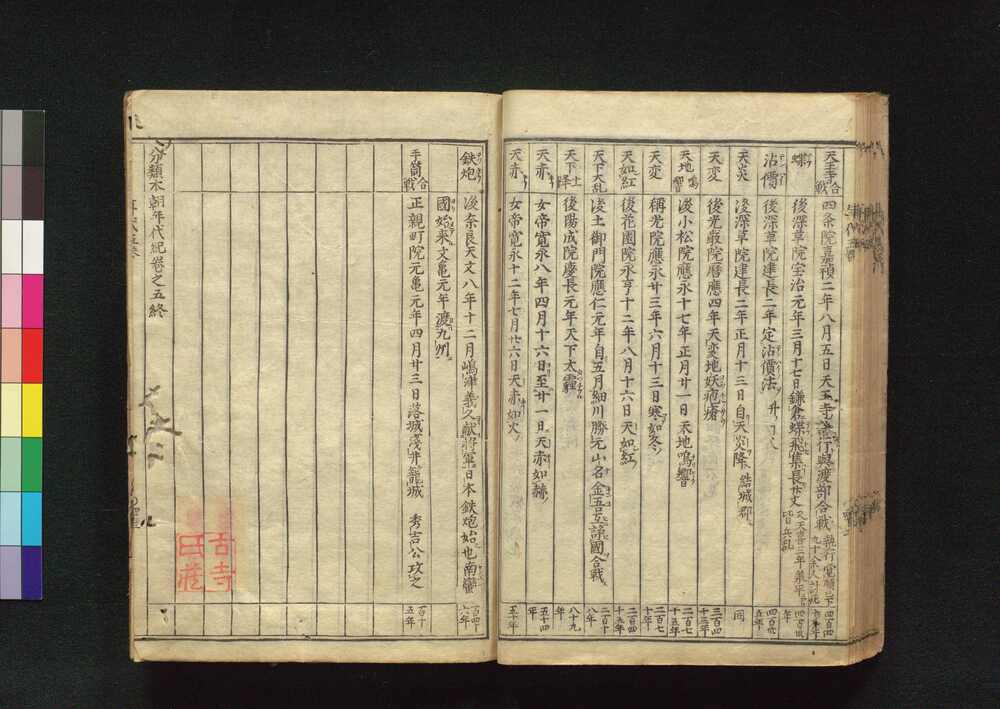 天王寺合戦 四条院嘉禎二年八月五日天王寺執行與渡部合戦
蝶 後深草院宝治元年三月十七日鎌倉蝶飛集長廿丈
沽價 後深草院建長二年定沽價法
天災 後深草院建長二年正月十三日自天災降結城郡 同
天変 後光厳院暦應四年天変地妖疱瘡 三百四十三年
天地鳴響 後小松院應永十七年正月廿一日天地鳴響 二百七十五年
天変 稱光院應永廿三年六月十三日寒如冬 二百七十年
天如紅 後花園院永亨十二年八月十六日天如紅
天下大乱 後土御門院應仁元年自五月細川勝元山名 合戦 二百十八年
天下土降 後陽成院慶長元年天下大霾 八十九年
天赤 女帝寛永八年四月十六日至廿一日天赤如赫 五十四年
天赤 女帝寛永十二年七月廿六日天赤如火 五十年
鉄炮 後奈良天文八年十二月嶋津義久献将軍日本鉄炮始也南蛮 百四十六年
國始来文亀元年渡九州
手筒合戦 正親町院元亀元年四月廿三日落城淺井籠城 秀吉公攻之 百十五年
分類本朝年代紀巻之五終